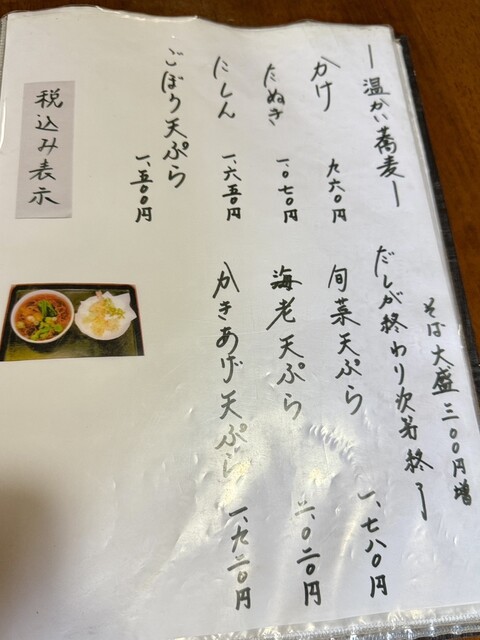 ー温かい蕎麦ー
そば大盛三〇〇円増
だしが終わり次第終了
かけ 九六〇円
たぬき 一、〇七〇円
にしん 一、六五〇円
ごぼう天ぷら 一、五〇〇円
旬菜天ぷら 一、七八〇円
海老天ぷら 二、〇二〇円
かきあげ天ぷら 一、九二〇円
税込み表示